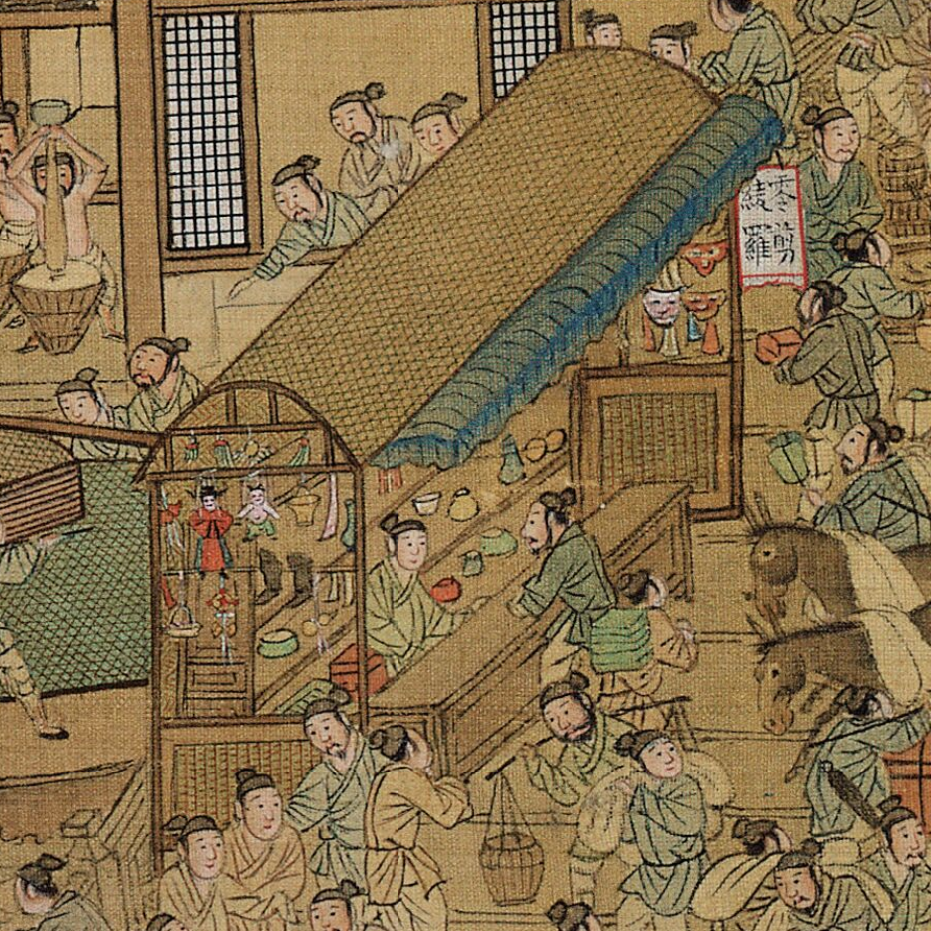 零剪
綾羅